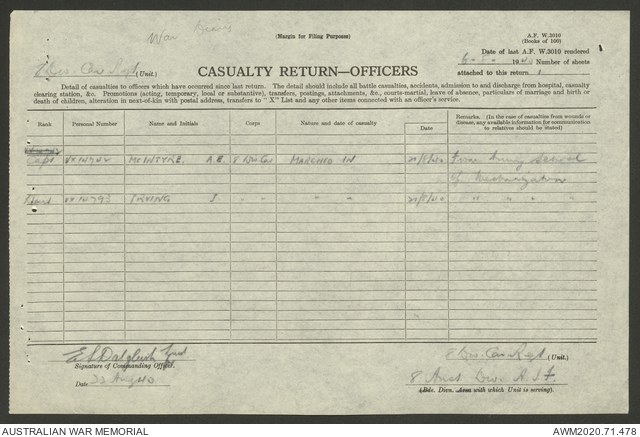 War Diary
(Margin for Filing Purposes)
A.F. W.3010
(Books of 100)
Date of last A.F. W.3010 rendered
6 - 8 - 1940 Number of sheets
attached to this return 1
8 Div Cav Regt (Unit.)
CASUALTY RETURN—OFFICERS
Detail of casualties to officers which have occurred since last return. The detail should include all battle casualties, accidents, admission to and discharge from hospital, casualty
clearing station, &c. Promotions (acting, temporary, local or substantive), transfers, postings, attachments, &c., courts-martial, leave of absence, particulars of marriage and birth or
death of children, alteration in next-of-kin with postal address, transfers to "X" List and any other items connected with an officer's service.
Rank Personal Number Name and Initials Corps Nature and date of casualty Date Remarks. (In the case of casualties from wounds or disease, any available information for communication to relatives should be stated)
Capt McINTYRE. A.E. 8 Div Cav MARCHED IN 21/8/40 From Army School
of Mechanization
IRVING " " " " 21/8/40 " " " "
E S Dalgleish
Signature of Commanding Officer.
Date 23 Aug 40
8 Div Cav Regt (Unit.)
8 Aust Div A.I.F.
(Bde. Divn. Area with which Unit is serving).
AUSTRALIAN WAR MEMORIAL
AWM2020.71.478